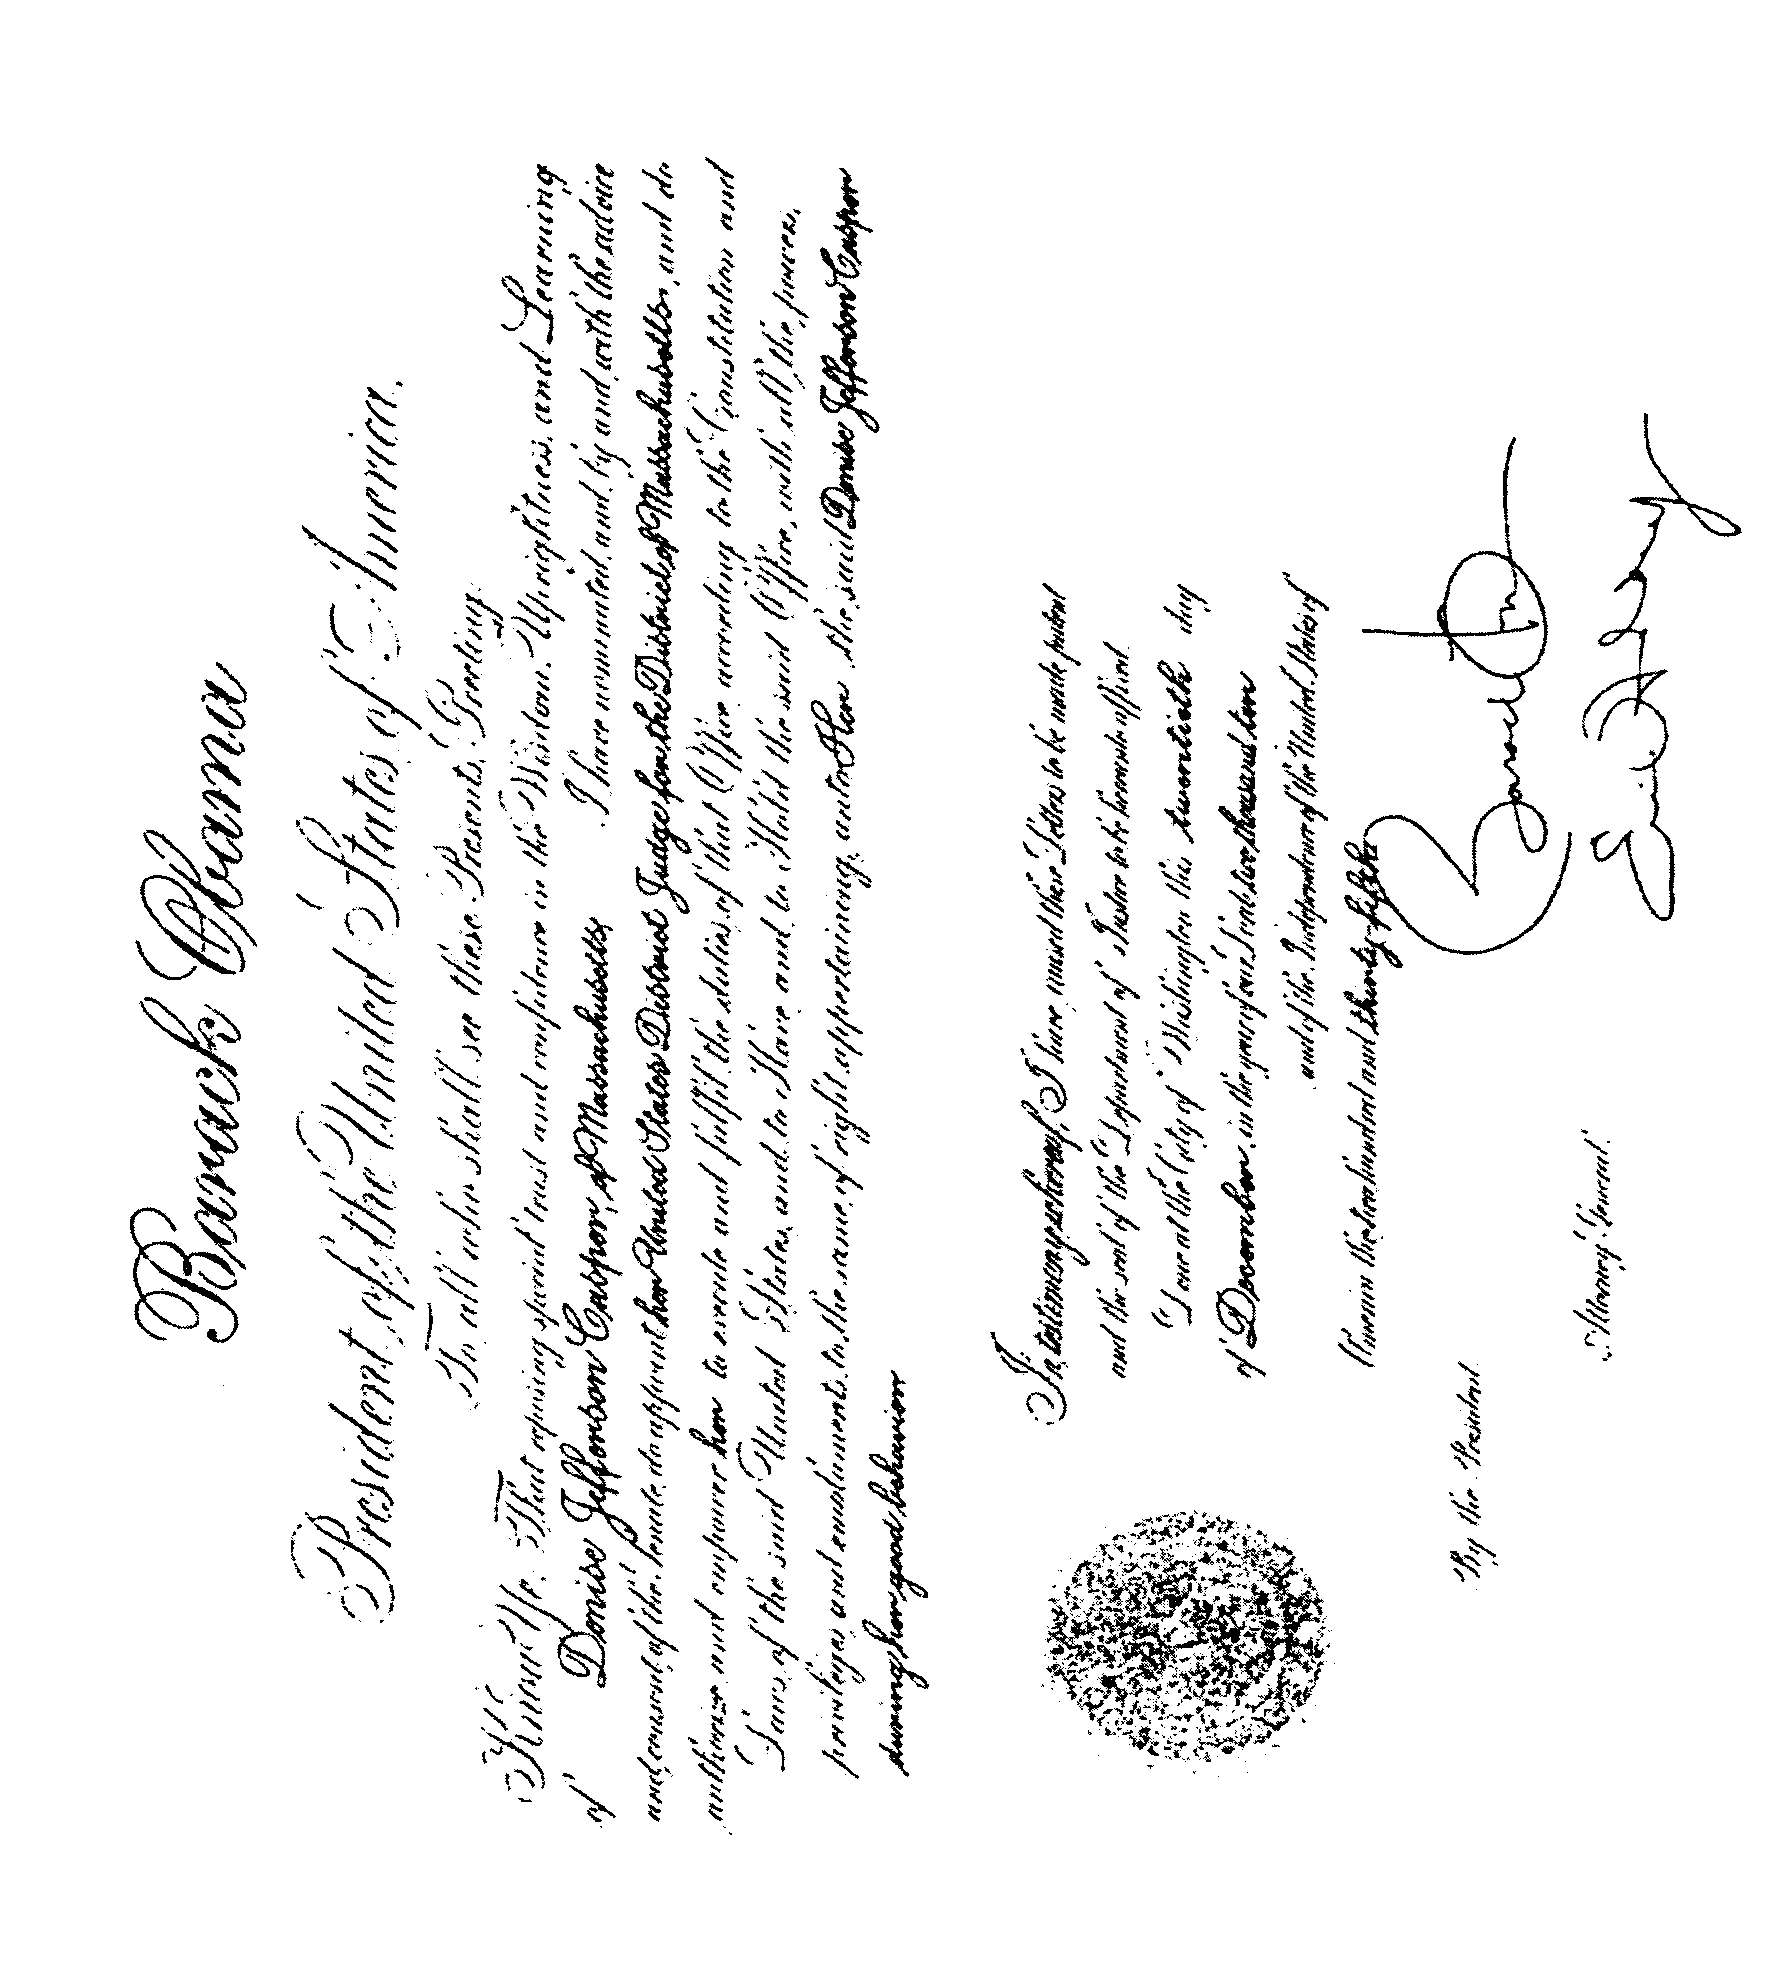 Barack Obama
President of the United States of America.
To all who shall see these Presents, Greeting:
Know Ye: That reposing special trust and confidence in the Wisdom, Uprightness, and Learning
of Denise Jefferson Casper, of Massachusetts, I have nominated, and, by and with the advice
and consent of the Senate, do appoint her United States District Judge for the District of Massachusetts, and do
authorize and empower her to execute and fulfil the duties of that Office according to the Constitution and
Laws of the said United States, and to Have and to Hold the said Office, with all the powers,
privileges and emoluments to the same of right appertaining, unto Her, the said Denise Jefferson Casper
during her good behavior
In testimony whereof, I have caused these Letters to be made patent
and the seal of the Department of Justice to be hereunto affixed.
Done at the City of Washington this twentieth day
of December, in the year of our Lord two thousand ten
and of the Independence of the United States of
America the two hundred and thirty-fifth.
Barack Obama
By the President
Eric Holder
Attorney General.